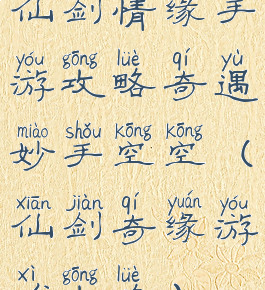 仙剑情缘手
yóu gōng lüè qí yù
游攻略奇遇
miào shǒu kōng kōng
妙手空空（
xiān jiàn qí yuán yóu
仙剑奇缘游
xì gōng lüè